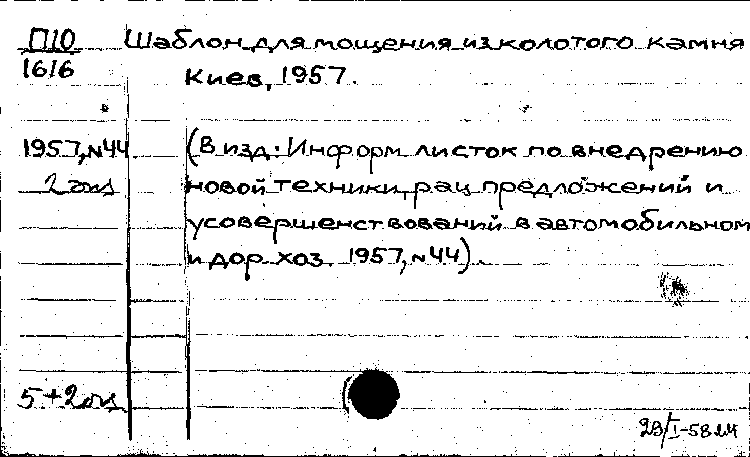 П10 Шаблон для мощения из колотого камня
1616 Киев, 1957.
1957, №44 (В изд: Информ листок по внедрению
2 экз новой техники, рац предложений и
усовершенствований в автомобильном
и дор хоз 1957, №44).
5+2 экз
28/I-58